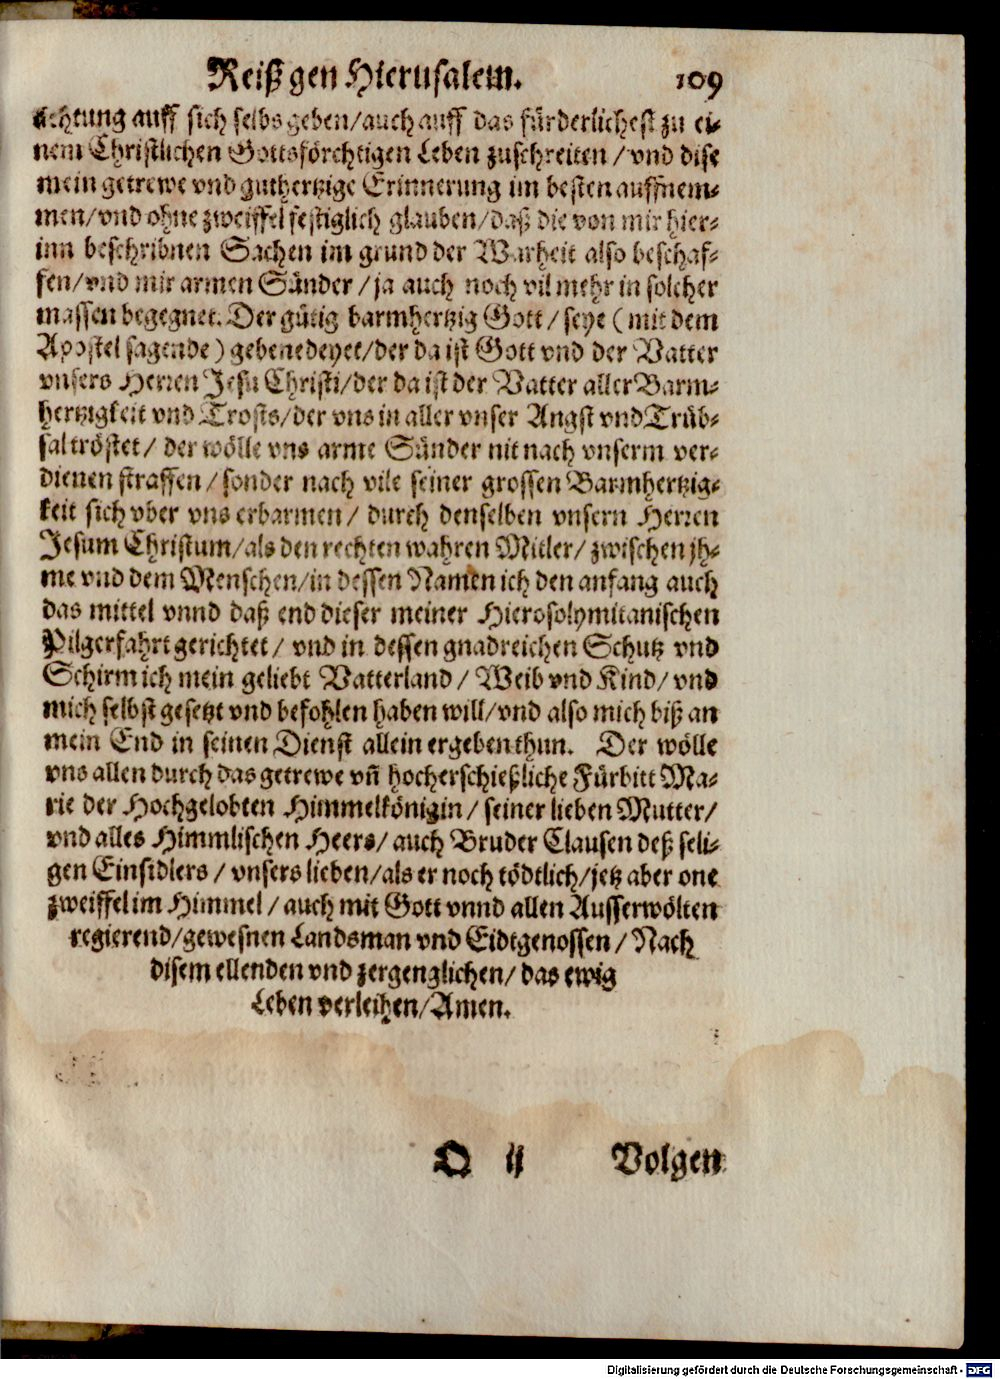 Reiß gen Hierusalem. 109
achtung auff sich selbs geben/auch auff das fürderlichest zu ei-
nem Christlichen Gottsförchtigen Leben zuschreiten/vnd dise
mein getrewe vnd guthertzige Erinnerung im besten auffnem-
men/vnd ohne zweiffel festiglich glauben/daß die von mir hier-
inn beschribnen Sachen im grund der Warheit also beschaf-
fen/vnd mir armen Sünder/ja auch noch vil mehr in solcher
massen begegnet. Der gütig barmhertzig Gott/seye (mit dem
Apostel sagende) gebenedeyet/der da ist Gott vnd der Vatter
vnsers Herren Jesu Christi/der da ist der Vatter aller Barm-
hertzigkeit vnd Trosts/der vns in aller vnser Angst vnd Trüb-
sal tröstet/der wölle vns arme Sünder nit nach vnserm ver-
dienen straffen/sonder nach vile seiner grossen Barmhertzig-
keit sich vber vns erbarmen/durch denselben vnsern Herren
Jesum Christum/als den rechten wahren Mitler/zwischen jh-
me vnd dem Menschen/in dessen Namen ich den anfang auch
das mittel vnnd daß end dieser meiner Hierosolymitanischen
Pilgerfahrt gerichtet/vnd in dessen gnadreichen Schutz vnd
Schirm ich mein geliebt Vatterland/Weib vnd Kind/vnd
mich selbst gesetzt vnd befohlen haben will/vnd also mich biß an
mein End in seinen Dienst allein ergeben thun. Der wölle
vns allen durch das getrewe vñ hocherschießliche Fürbitt Ma-
rie der Hochgelobten Himmelkönigin/seiner lieben Mutter/
vnd alles Himmlischen Heers/auch Bruder Clausen deß seli-
gen Einsidlers/vnsers lieben/als er noch tödtlich/jetz aber one
zweiffel im Himmel/auch mit Gott vnnd allen Ausserwölten
regierend/gewesnen Landsman vnd Eidtgenossen/Nach
disem ellenden vnd zergenglichen/das ewig
Leben verleihen/Amen.
O ij Volgen
Digitalisierung gefördert durch die Deutsche Forschungsgemeinschaft - DFG